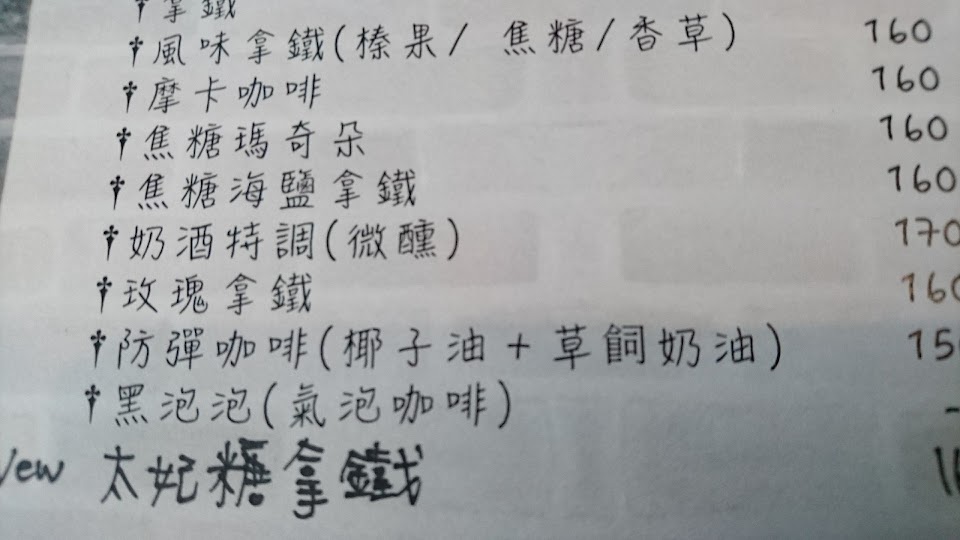 拿鐵
†風味拿鐵(榛果/ 焦糖/香草) 160
†摩卡咖啡 160
†焦糖瑪奇朵 160
†焦糖海鹽拿鐵 160
†奶酒特調(微醺) 170
†玫瑰拿鐵 160
†防彈咖啡(椰子油+草飼奶油) 15
†黑泡泡(氣泡咖啡)
New 太妃糖拿鐵